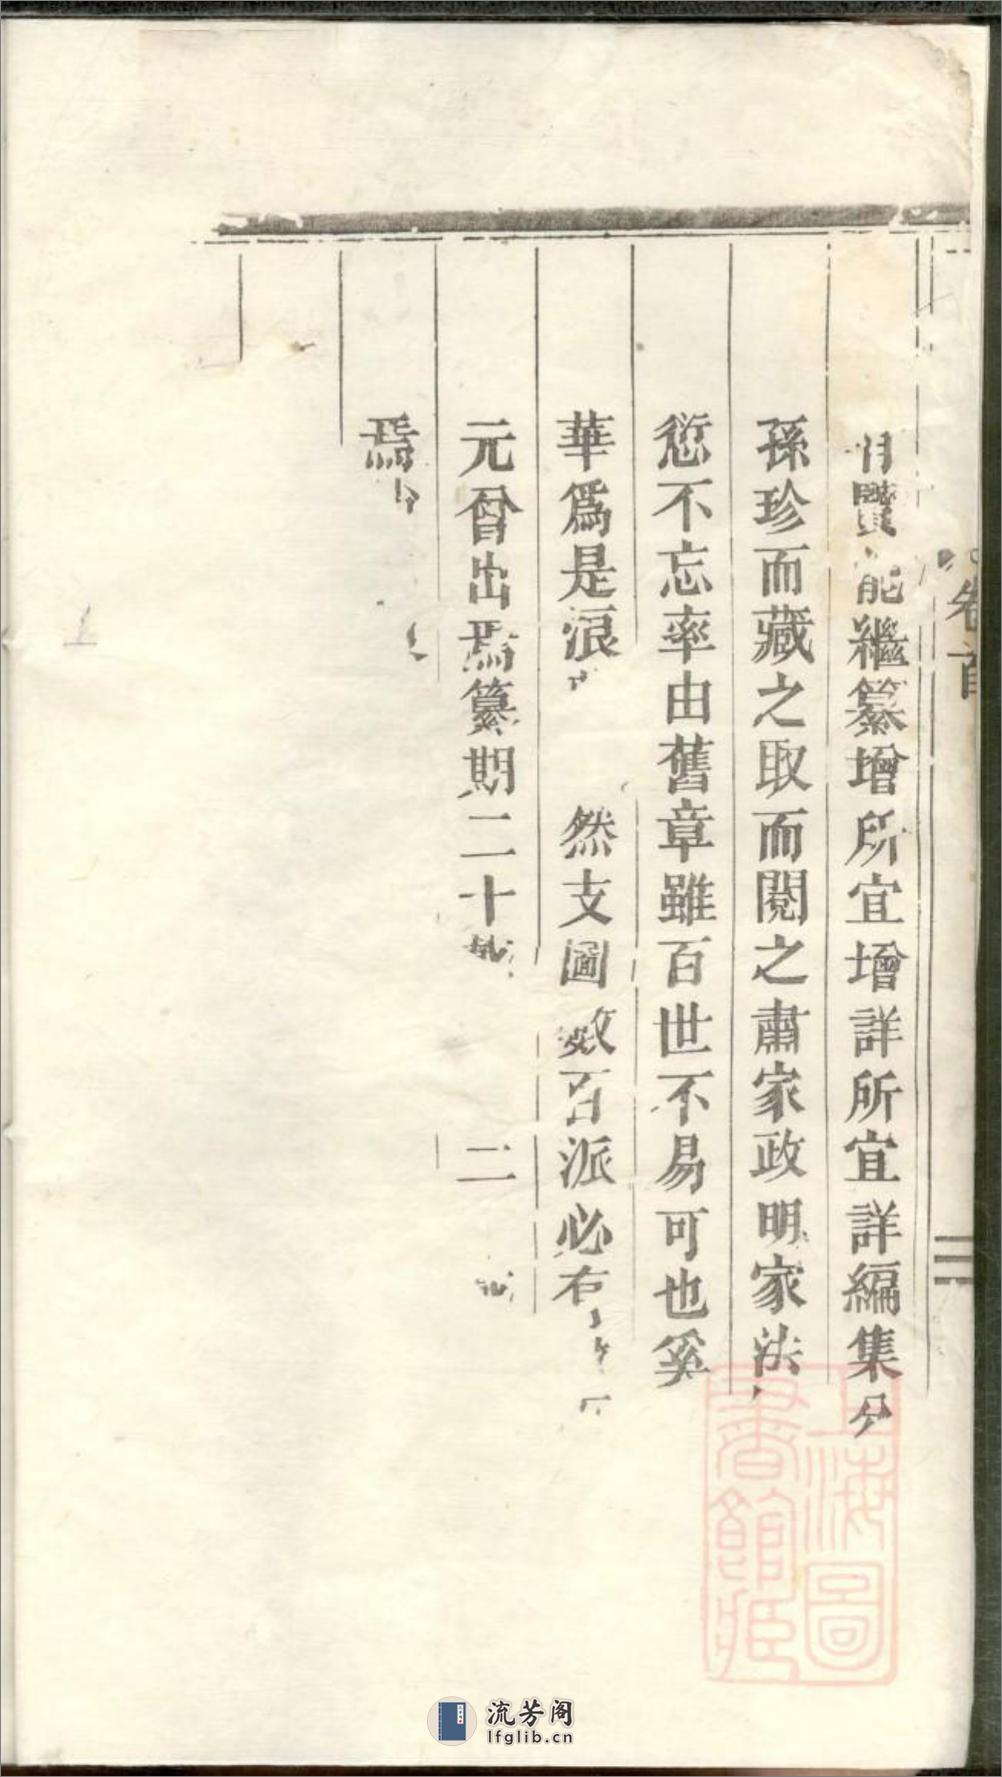 卷首
賢能繼纂增所宜增詳所宜詳編集分
孫珍而藏之取而閱之肅家政明家法
愆不忘率由舊章雖百世不易可也奚
華爲是浪然支圖數百派必有
元會出焉纂期二十二
焉
上海圖
書館藏
流芳阁
lfglib.cn